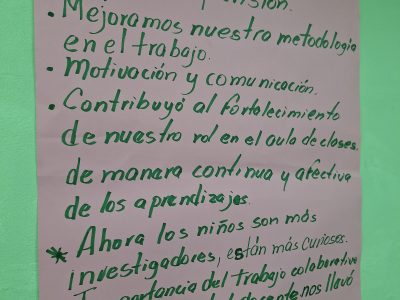 • Mejoramos nuestra metodología
en el trabajo.
• Motivación y comunicación.
• Contribuyó al fortalecimiento
de nuestro rol en el aula de clases.
de manara continua y afectiva
de los aprendizajes.
* Ahora los niños son más
investigadores, están más curiosos.
Importancia del trabajo colaborativo
nos llevó